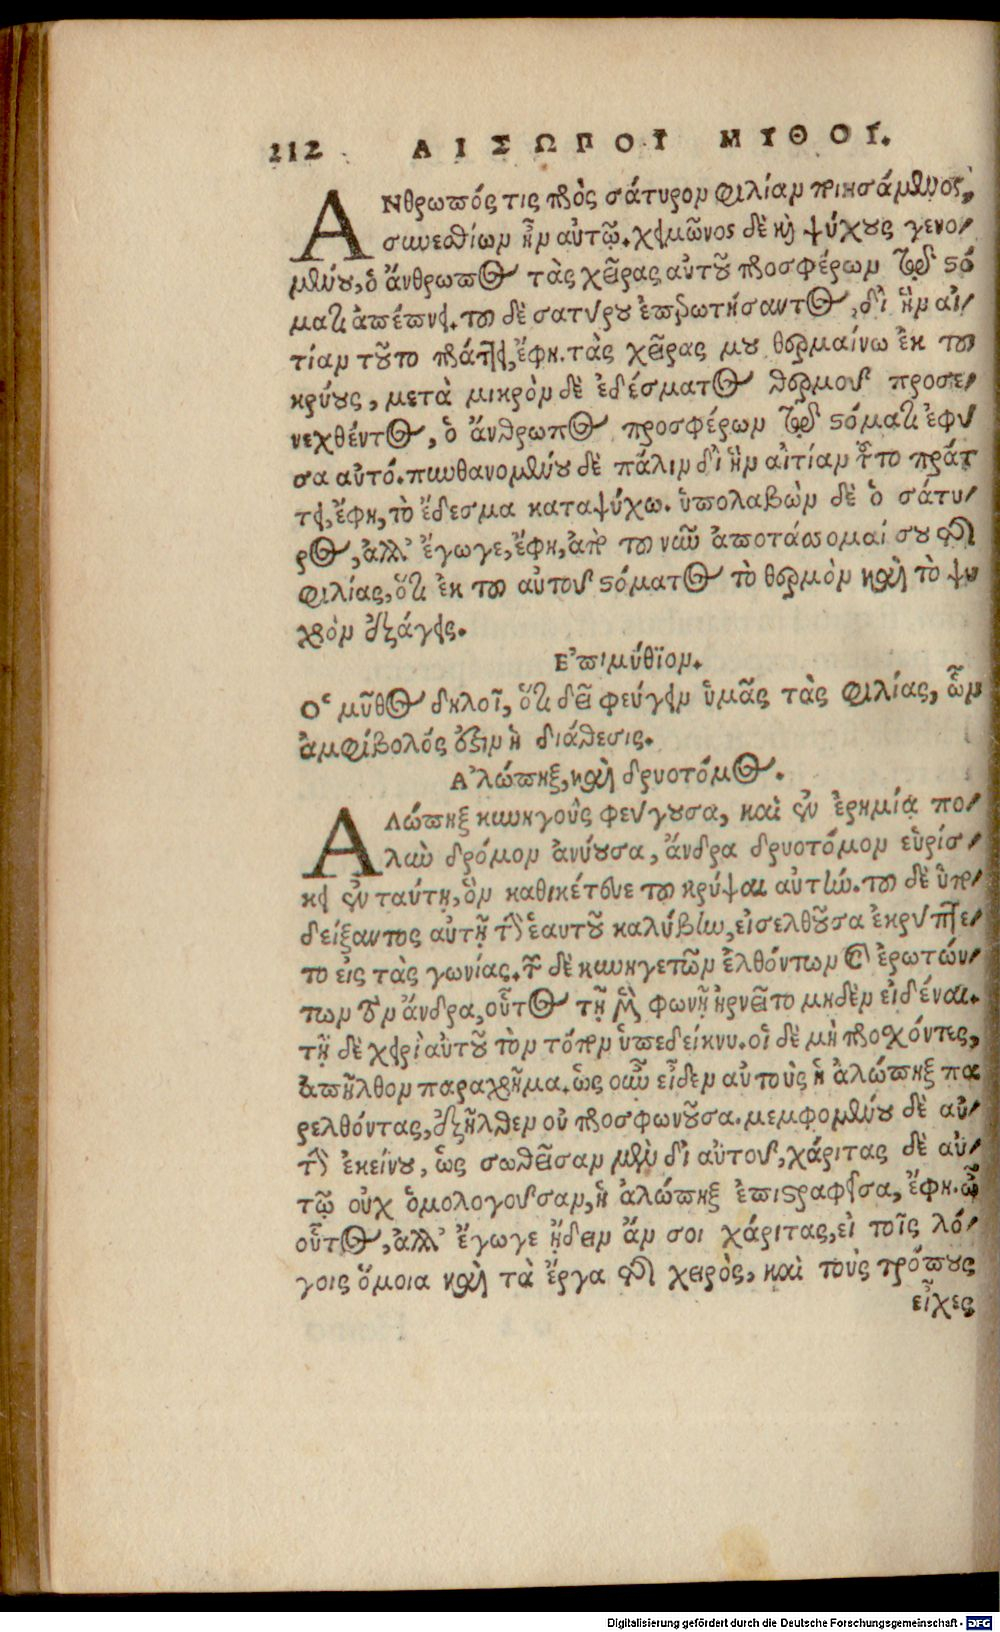 212 ΑΙΣΩΠΟΥ ΜΥΘΟΙ.
ΑΝθρωπός τις πρὸς σάτυρον φιλίαν ποιησάμενος,
συνεσθίων ἦν αὐτῷ. χειμῶνος δὲ καὶ ψύχους γενο-
μένου, ὁ ἄνθρωπος τὰς χεῖρας αὐτοῦ προσφέρων τῷ στό
ματι ἀπέπνει. τοῦ δὲ σατύρου ἐπερωτήσαντος, δι' ἣν αἰ-
τίαν τοῦτο πράττει, ἔφη. τὰς χεῖράς μου θερμαίνω ἐκ τοῦ
κρύους, μετὰ μικρὸν δὲ ἐδέσματος θερμοῦ προσε-
νεχθέντος, ὁ ἄνθρωπος προσφέρων τῷ στόματι ἐφύ
σα αὐτό. πυνθανομένου δὲ πάλιν δι' ἣν αἰτίαν τοῦτο πράτ
τει, ἔφη, τὸ ἔδεσμα καταψύχω. ὑπολαβὼν δὲ ὁ σάτυ-
ρος, ἀλλ' ἔγωγε, ἔφη, ἀπὸ τοῦ νῦν ἀποτάσσομαί σου τῆς
φιλίας, ὅτι ἐκ τοῦ αὐτοῦ στόματος τὸ θερμὸν καὶ τὸ ψυ
χρὸν ἐξάγεις.
Ἐπιμύθιον.
Ὁ μῦθος δηλοῖ, ὅτι δεῖ φεύγειν ὑμᾶς τὰς φιλίας, ὧν
ἀμφίβολός ἐστιν ἡ διάθεσις.
Ἀλώπηξ, καὶ δρυοτόμος.
ΑΛώπηξ κυνηγοὺς φεύγουσα, καὶ ἐν ἐρημίᾳ πο-
λὺν δρόμον ἀνύουσα, ἄνδρα δρυοτόμον εὑρίσ-
κει ἐν ταύτῃ, ὃν καθικέτευε τοῦ κρύψαι αὐτήν. τοῦ δὲ ὑπο-
δείξαντος αὐτῇ τὴν ἑαυτοῦ καλύβην, εἰσελθοῦσα ἐκρύπτε-
το εἰς τὰς γωνίας. τῶν δὲ κυνηγετῶν ἐλθόντων καὶ ἐρωτών-
των τὸν ἄνδρα, οὗτος τῇ μὲν φωνῇ ἠρνεῖτο μηδὲν εἰδέναι.
τῇ δὲ χειρὶ αὐτοῦ τὸν τόπον ὑπεδείκνυ. οἱ δὲ μὴ προσχόντες,
ἀπῆλθον παραχρῆμα. ὡς οὖν εἶδεν αὐτοὺς ἡ ἀλώπηξ πα
ρελθόντας, ἐξῆλθεν οὐ προσφωνοῦσα. μεμφομένου δὲ αὐ-
τὴν ἐκείνου, ὡς σωθεῖσαν μὲν δι' αὐτοῦ, χάριτας δὲ αὐ-
τῷ οὐχ ὁμολογοῦσαν, ἡ ἀλώπηξ ἐπιστραφεῖσα, ἔφη. ὦ
οὗτος, ἀλλ' ἔγωγε ᾔδειν ἄν σοι χάριτας, εἰ τοῖς λό-
γοις ὅμοια καὶ τὰ ἔργα τῆς χειρὸς, καὶ τοὺς τρόπους
εἶχες
Digitalisierung gefördert durch die Deutsche Forschungsgemeinschaft - DFG